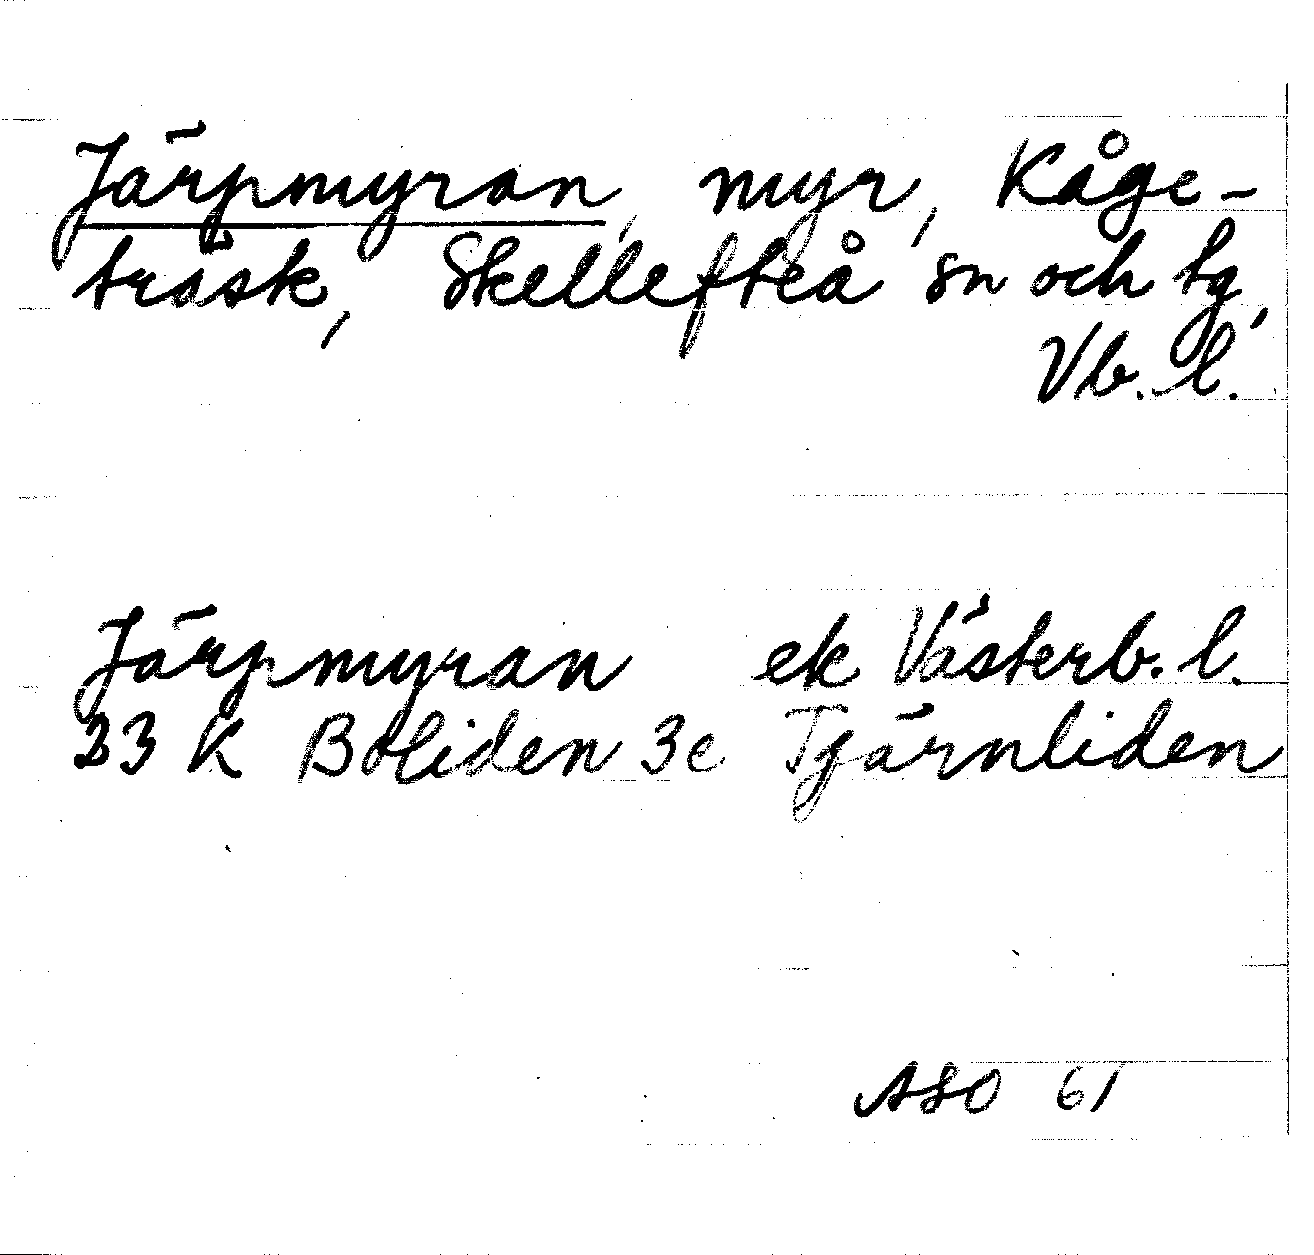 Järpmyran, myr, Kåge-
träsk, Skellefteå sn och tg,
Vb. l.
Järpmyran ek Västerb. l.
23 K Boliden 3c Tjärnliden
ASO 61